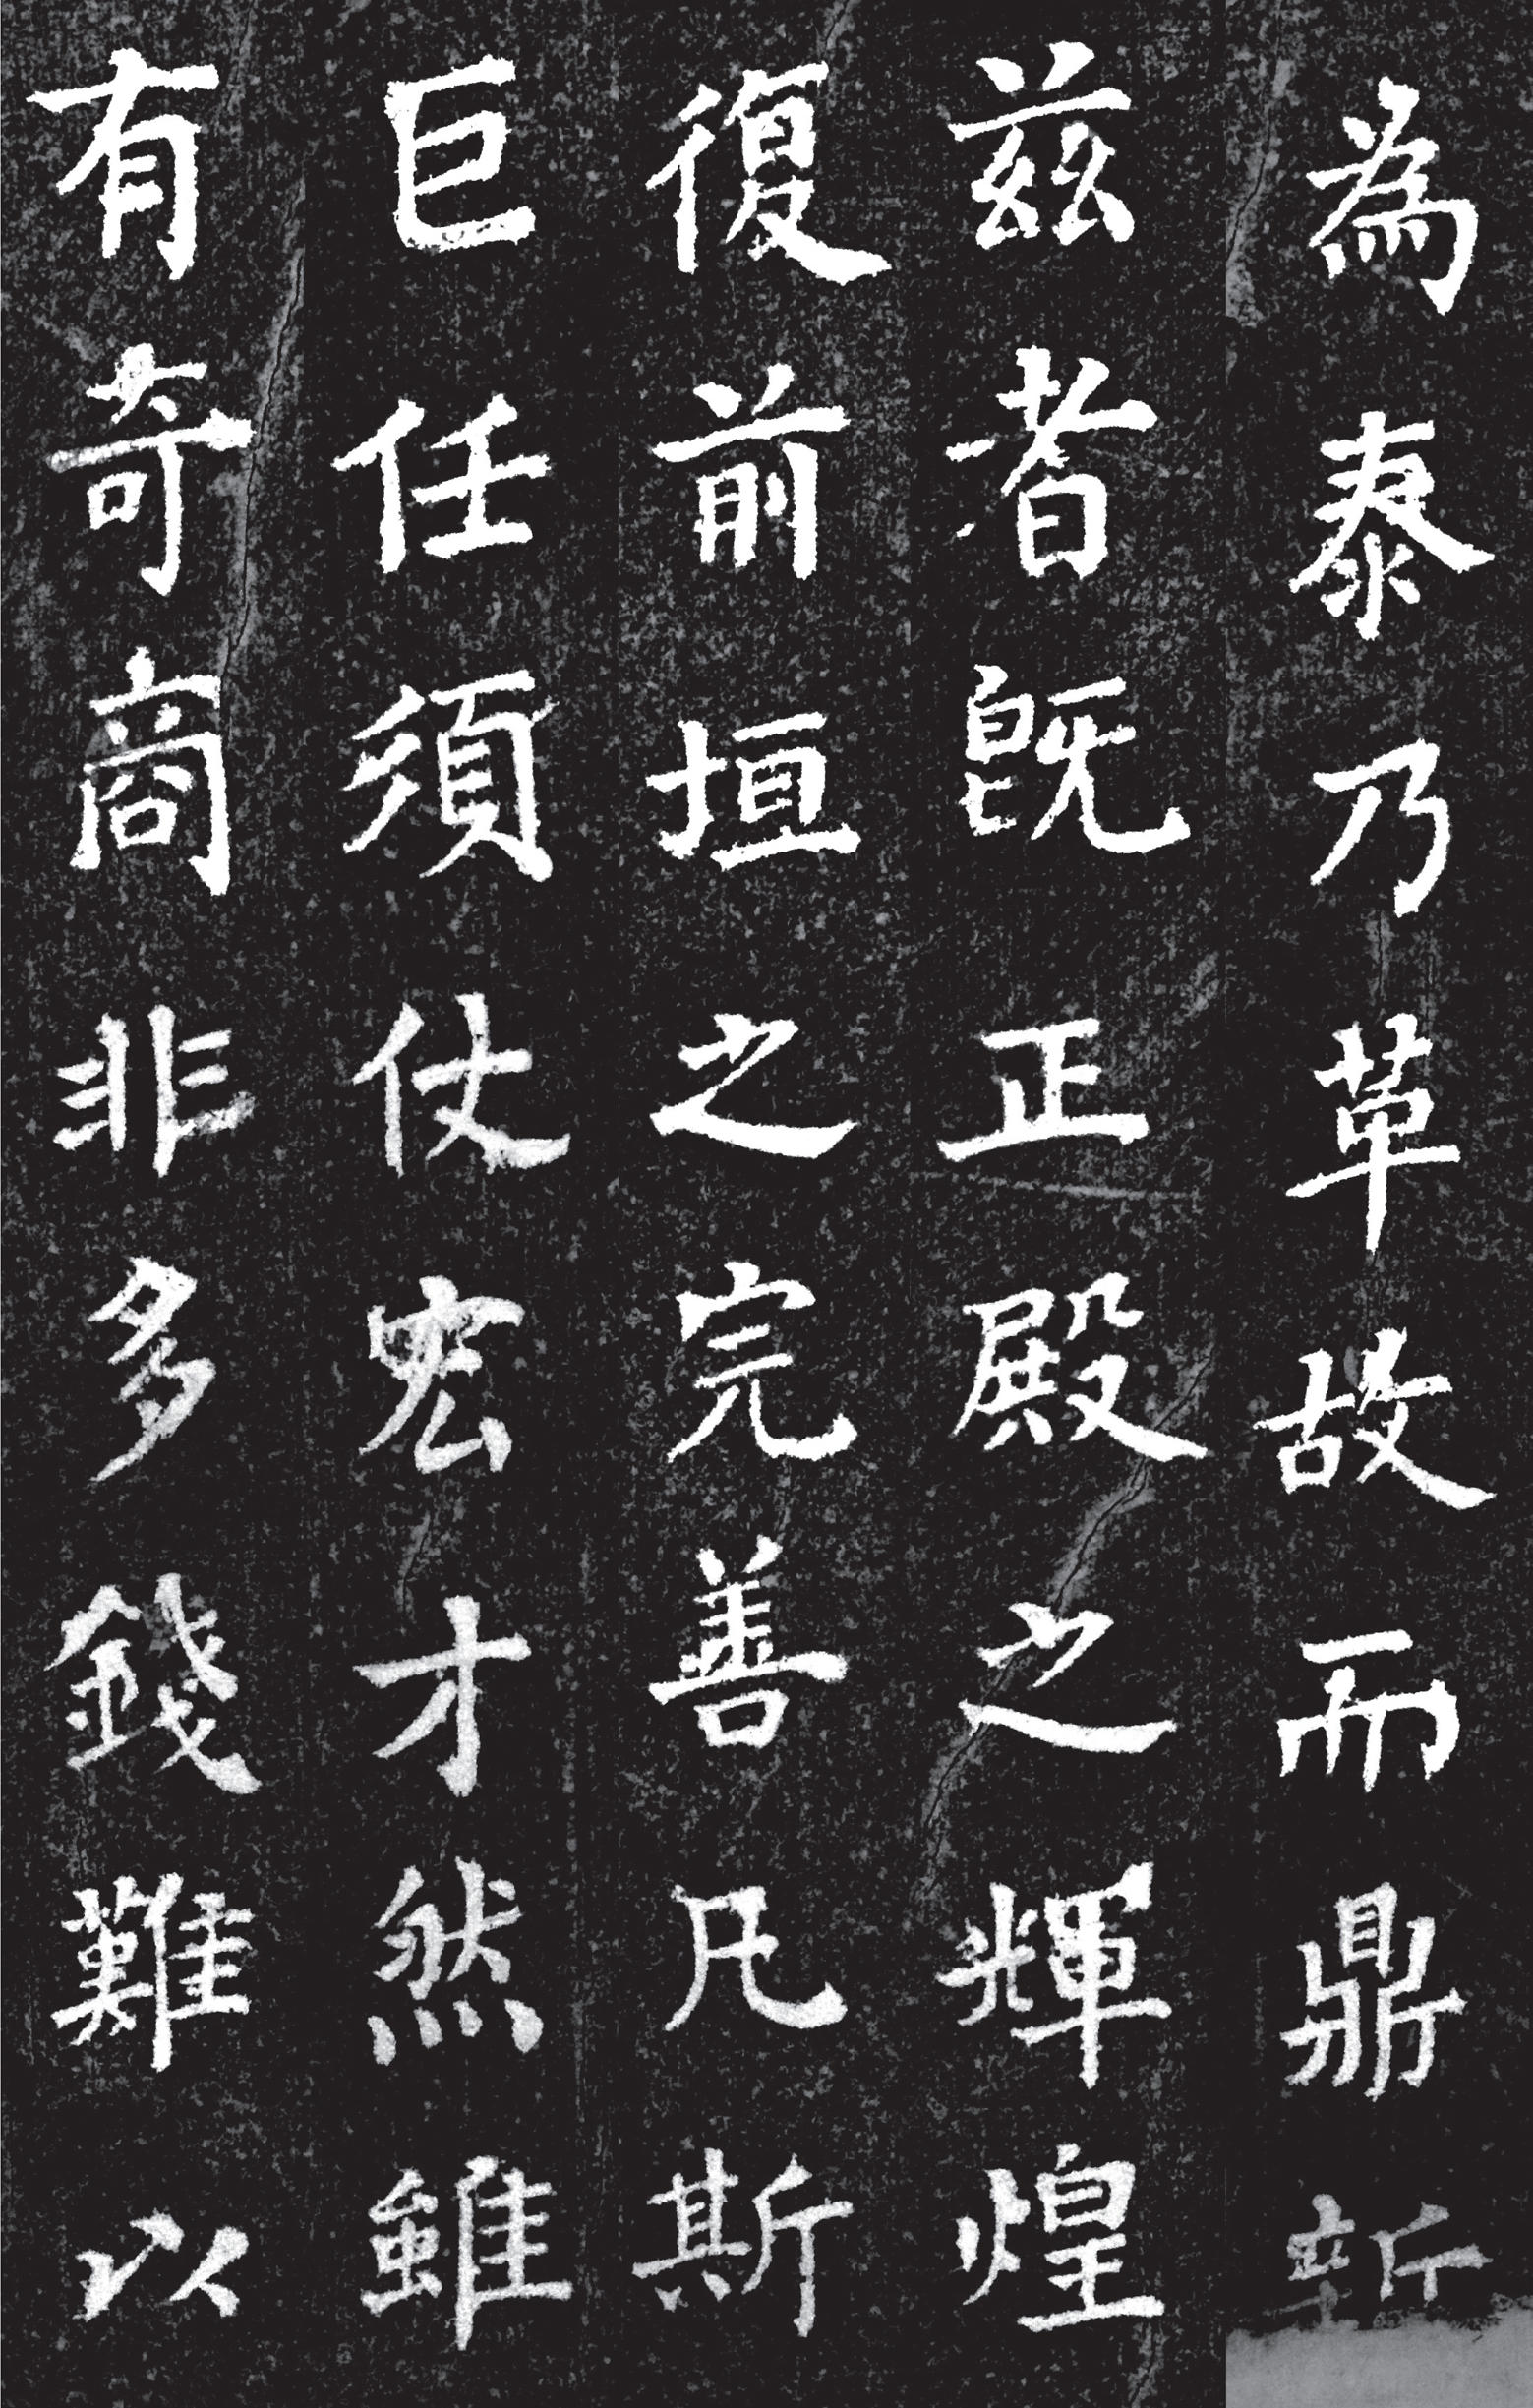 為泰乃革故而鼎新
茲者既正殿之輝煌
復前垣之完善凡斯
巨任須仗宏才然雖
有奇商非多錢難以